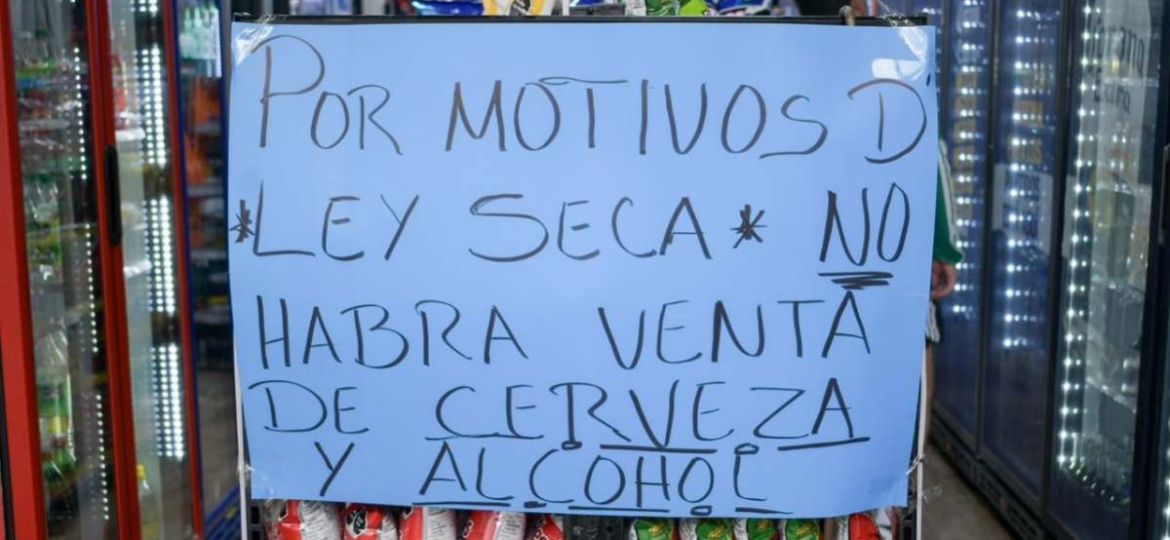 POR MOTIVOS D
*LEY SECA* NO
HABRA VENTA
DE CERVEZA
Y ALCOHOL